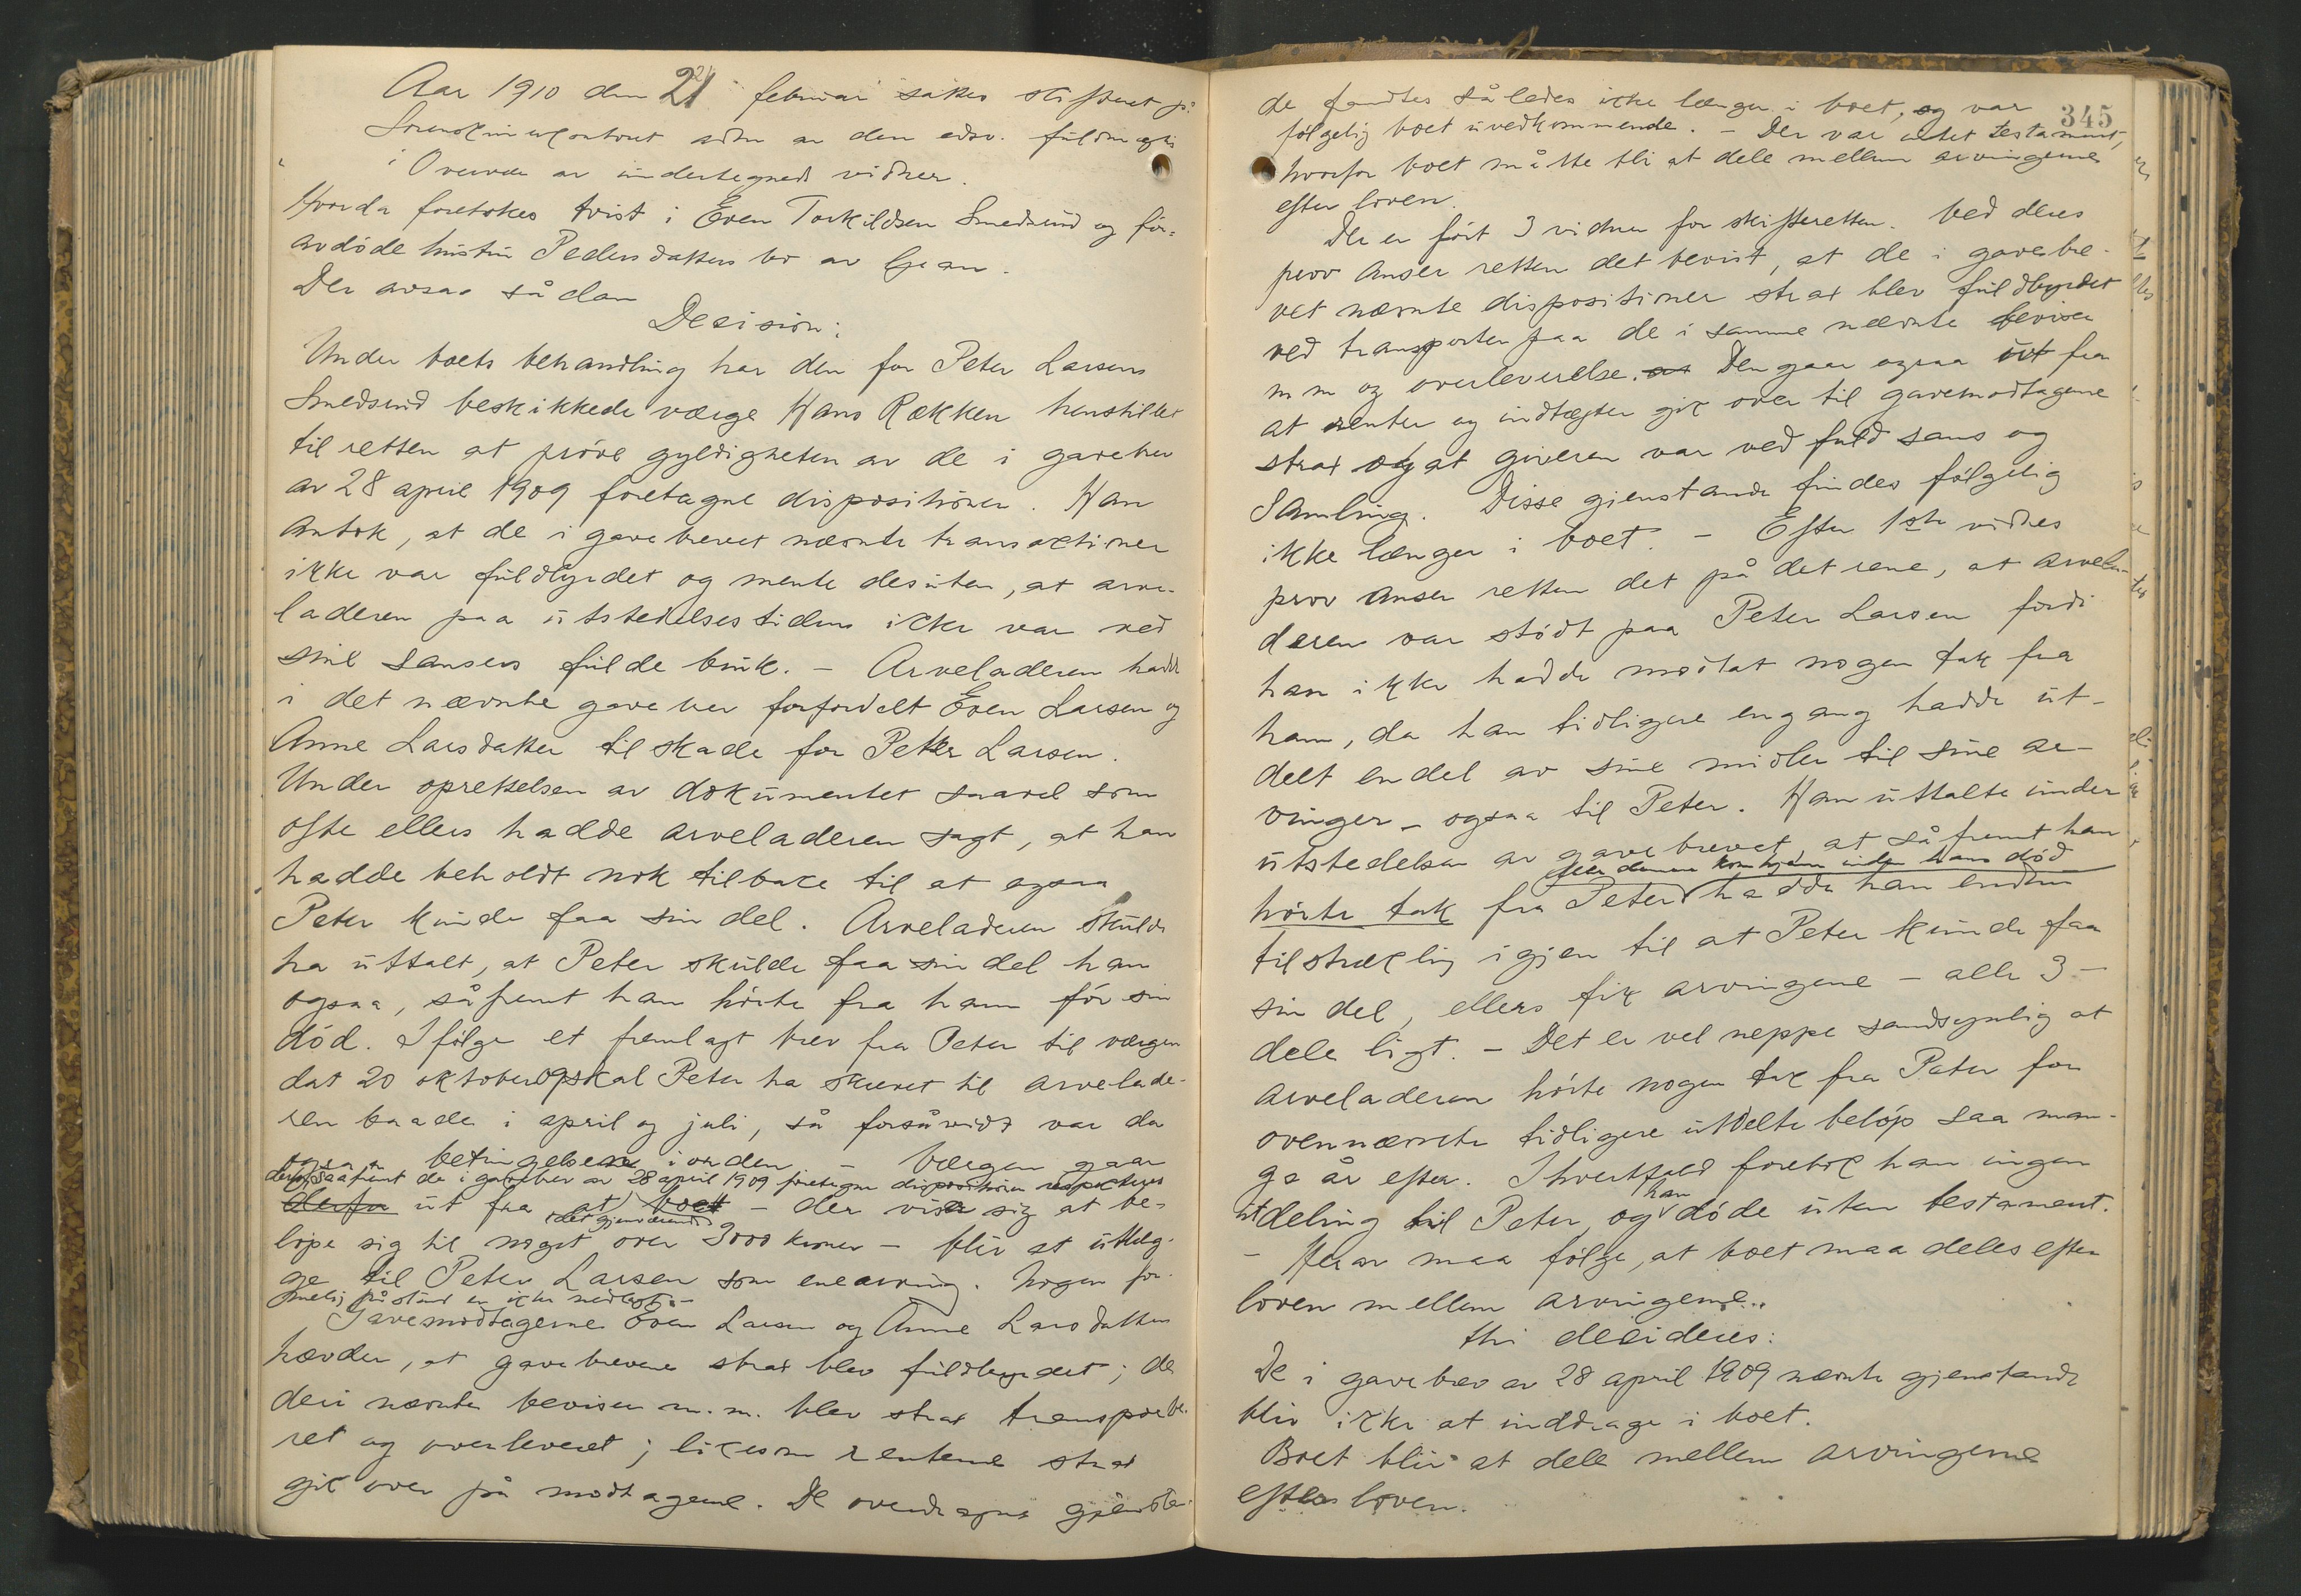 Aar 1910 den 21 februar sattes skifteret på
Sorenskriverkontoret adm av den edsv. fuldmægtig
i Overvær av undertegnede vidner.
Hvorda foretokes tvist i Even Torkildsen Smedsrud og før-
avdöde hustru Pedersdatters bo av Gran.
Der avsas sådan
Decision:
Under boets behandling har den for Peter Larsen
Smedsrud beskikkede værge Hans Rækken henstillet
til retten at pröve gyldigheten av de i gavebrev
av 28 april 1909 foretagne dispositioner. Han
antok, at de i gavebrevet nævnte transactioner
ikke var fuldbyrdet og mente desuten, at arve-
laderen paa utstedelsestiden ikke var ved
sine sansers fulde bruk. - Arveladeren hadde
i det nævnte gavebrev forfordelt Even Larsen og
Anne Larsdatter til skade for Peter Larsen.
Under oprettelsen av dokumentet saavel som
ofte ellers hadde arveladeren sagt, at han
hadde beholdt nok tilbake til at ogsaa
Peter kunde faa sin del. Arveladeren skulde
ha uttalt, at Peter skulde faa sin del han
ogsaa, såfremt han hörte fra ham för sin
död. Ifölge et fremlagt brev fra Peter til værgen
dat 20 oktober 09 skal Peter ha skrevet til arvelade-
ren baade i april og juli, så forsåvidt var da
ogsaa betingelsen iorden - Værgen gaar
derfor, saafremt de i gavebrev av 28 april 1909 foretagne dispositioner respekteres
derfor ut fra at boet - der viser sig at be-
(det gjenværende)
löpe sig til noget over 3000 kroner - blir at utlæg-
ge til Peter Larsen som enearving. Nogen for-
melig påstand er ikke nedlagt. -
Gavemodtagerne Even Larsen og Anne Larsdatter
hævder, at gavebrevene strax blev fuldbyrdet; de
deri nævnte beviser m.m. blev strax transporte-
ret og overleveret; likesom renterne strax
gik over på modtagerne. De overdragne gjenstan-
345
de fandtes således ikke længer i boet, og var
fölgelig boet uvedkommende. - Der var intet testament,
hvorfor boet måtte bli at dele mellem arvingerne
efter loven.
Der er fört 3 vidner for skifteretten. Ved deres
prov anser retten det bevist, at de i gavebre-
vet nævnte dispositioner strax blev fuldbyrdet
ved transporter paa de i samme nævnte beviser
m m og overleverelse. Den gaar ogsaa ut fra
at renter og indtægter gik over til gavemodtagerne
strax og at giveren var ved fuld sans og
samling. Disse gjenstande findes fölgelig
ikke længer i boet. - Efter 1ste vidnes
prov anser retten det på det rene, at arvela-
deren var stödt paa Peter Larsen fordi
han ikke hadde modtat nogen tak fra
ham, da han tidligere engang hadde ut-
delt en del av sine midler til sine ar-
vinger - ogsaa til Peter. Han uttalte under
utstedelsen av gavebrevet, at såfremt han
eller denne kom hjem inden hans död
hörte tak fra Peter hadde han endnu
tilstrækkelig igjen til at Peter kunde faa
sin del, ellers fik arvingene - alle 3 -
dele ligt. - Det er vel neppe sandsynlig at
arveladeren hörte nogen tak fra Peter for
ovennævnte tidligere utdelte belöp saa man-
ge år efter. Ihvertfald foretok han ingen
utdeling til Peter, og han döde uten testament.
- Herav maa fölge, at boet maa deles efter
loven mellem arvingerne.
thi decideres:
De i gavebrev av 28 april 1909 nævnte gjenstande
blir ikke at inddrage i boet.
Boet blir at dele mellem arvingerne
efter loven.